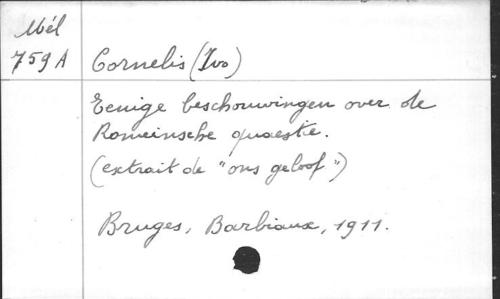 Mél
759A
Cornelis (Ivo)
Eenige beschouwingen over de
Romeinsche quaestie.
(extrait de "ons geloof")
Bruges, Barbiaux, 1911.